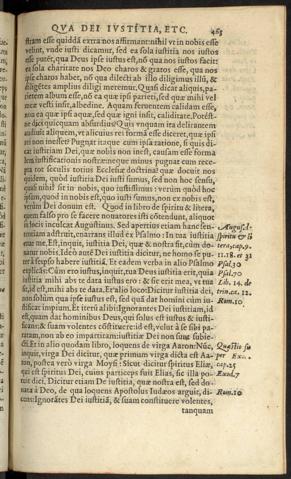 QVA DEI IVSTITIA, ETC. 463
stam esse quiddā extra nos affirmant: nihil vt in nobis esse
velint, vnde iusti dicamur, sed ea sola iustitia nos iustos
esse putēt, qua Deus ipse iustus est, nō qua nos iustos facit:
ea sola charitate nos Deo charos & gratos esse, qua nos
ipse charos habet, nō qua dilecti ab illo diligimus illū, &
diligētes amplius diligi meremur. Quasi dicat aliquis, pa-
rietem album esse, nō ea quæ ipsi parieti, sed quæ mihi vel
meæ vesti insit, albedine. Aquam feruentem calidam esse,
non ea quæ ipsi aquæ, sed quæ igni insit, caliditate. Potést-
ne dici quicquam absurdius? Quis vnquam ita delirantem
audiuit aliquem, vt alicuius rei formā esse diceret, quæ ipsi
rei non inesset? Pugnat itaque cum ipsa ratione, si quis di-
cat iustitiam Dei, quæ nobis non inest, causam esse forma
lem iustificationis nostræ: neque minus pugnat cum rece-
pta tot seculis totius Ecclesiæ doctrina quæ docuit nos
quidem, quòd iustitia Dei iusti sumus, sed non hoc sensu,
quasi nihil sit in nobis, quo iusti simus: verùm quòd hoc
ipsum, quod in nobis est, quo iusti sumus, non ex nobis est,
verùm Dei donum est. Quod in libro de spiritu & litera,
quem falso pro se facere nouatores isti ostendunt, aliquot
in locis inculcat Augustinus. Sed apertius etiam hanc sen-
tentiam adstruit, enarrans illud ex Psalmo: In tua iustitia
erue me. Est, inquit, iustitia Dei, quæ & nostra fit, cùm do-
natur nobis. Ideò autē Dei iustitia dicitur, ne homo se pu-
tet à seipso habere iustitiā. Et eadem verba in alio Psalmo
explicās: Cùm ero iustus, inquit, tua Deus iustitia erit, quia
iustitia mihi abs te data iustus ero: & sic erit mea, vt tua
sit, id est, mihi abs te data. Et alio loco: Dicitur iustitia dei,
non solùm qua ipse iustus est, sed quā dat homini cùm iu-
stificat impium. Et iterū alibi: Ignorantes Dei iustitiam, id
est, quam dat hominibus Deus, qui solus est iustus & iusti-
ficans: & suam volentes cōstituere: id est, velut à se sibi pa-
ratam, non ab eo impartitam: iustitiæ Dei non sunt subie-
cti. Et in alio quodam libro, loquens de virga Aaron: Nūc,
inquit, virga Dei dicitur, quæ primum virga dicta est Aa-
ron, postea verò virga Moysi: Sicut dicitur spiritus Eliæ,
qui est spiritus Dei, cuius particeps fuit Elias, sic illa po-
tuit dici. Dicitur etiam De iustitia, quæ nostra est, sed do-
nata à Deo, de qua loquens Apostolus Iudæos arguit, di-
cens: Ignorātes Dei iustitiā, & suam constituere volentes,
tanquam
August.l.
spiritu & li
tera, cap.9.
11.18. et 32
Psal.30
Psal.70
Lib. 14. de
trin.ca. 12.
Rom.10
Quæstio su
per Exo.
cap.25
Exod.7
Rom.10